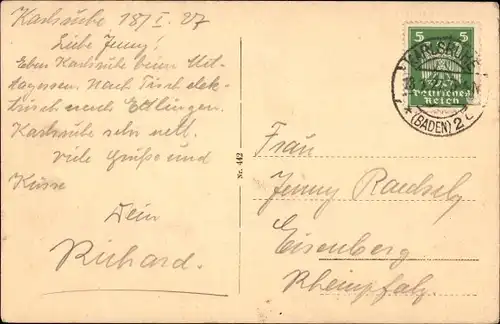 Karlsruhe 18/I. 27
Liebe Jenny!
Eben Karlsruhe beim Mit-
tagessen. Nach Tisch elek-
trisch nach Ettlingen.
Karlsruhe sehr nett.
Viele Grüße und
Küsse
Dein
Richard.
Nr. 442
5 5
Deutsches
Reich
KARLSRUHE
(BADEN) 2
Frau
Jenny
Eisenberg
Rheinpfalz.